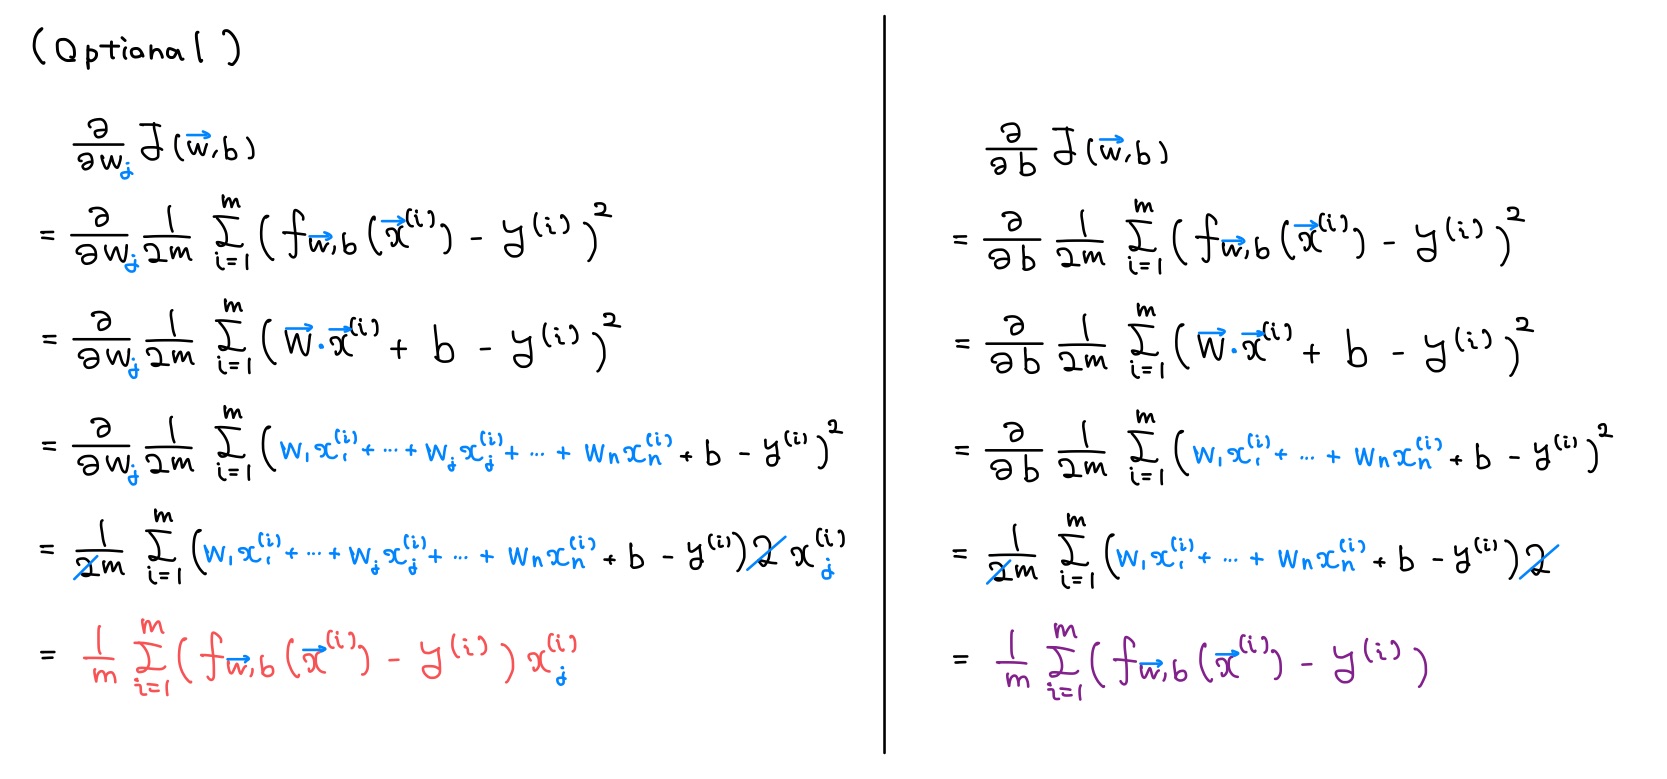 (Optional)
∂/∂w_j J(w⃗,b)
= ∂/∂w_j 1/2m Σ_{i=1}^{m} (f_{w⃗,b}(x⃗^{(i)}) - y^{(i)})^2
= ∂/∂w_j 1/2m Σ_{i=1}^{m} (w⃗·x⃗^{(i)} + b - y^{(i)})^2
= ∂/∂w_j 1/2m Σ_{i=1}^{m} (w_1x_1^{(i)} + ... + w_jx_j^{(i)} + ... + w_nx_n^{(i)} + b - y^{(i)})^2
= 1/2m Σ_{i=1}^{m} (w_1x_1^{(i)} + ... + w_jx_j^{(i)} + ... + w_nx_n^{(i)} + b - y^{(i)}) 2 x_j^{(i)}
= 1/m Σ_{i=1}^{m} (f_{w⃗,b}(x⃗^{(i)}) - y^{(i)}) x_j^{(i)}
∂/∂b J(w⃗,b)
= ∂/∂b 1/2m Σ_{i=1}^{m} (f_{w⃗,b}(x⃗^{(i)}) - y^{(i)})^2
= ∂/∂b 1/2m Σ_{i=1}^{m} (w⃗·x⃗^{(i)} + b - y^{(i)})^2
= ∂/∂b 1/2m Σ_{i=1}^{m} (w_1x_1^{(i)} + ... + w_nx_n^{(i)} + b - y^{(i)})^2
= 1/2m Σ_{i=1}^{m} (w_1x_1^{(i)} + ... + w_nx_n^{(i)} + b - y^{(i)}) 2
= 1/m Σ_{i=1}^{m} (f_{w⃗,b}(x⃗^{(i)}) - y^{(i)})